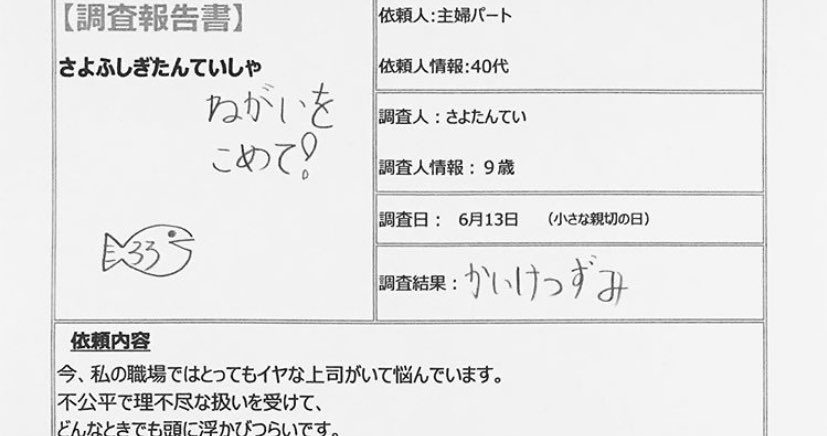 【調査報告書】
さよふしぎたんていしゃ
ねがいを
こめて!
33
依頼人:主婦パート
依頼人情報:40代
調査人:さよたんてい
調査人情報:9歳
調査日: 6月13日 (小さな親切の日)
調査結果:かいけつずみ
依頼内容
今、私の職場ではとってもイヤな上司がいて悩んでいます。
不公平で理不尽な扱いを受けて、
どんなときでも頭に浮かびつらいです。